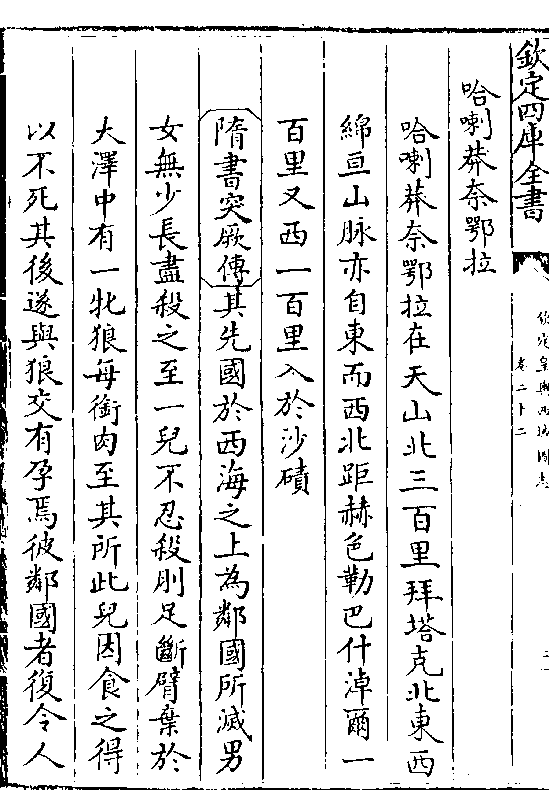 欽定四庫全書
欽定皇輿西域圖志
卷二十二
哈喇莽奈鄂拉
哈喇莽奈鄂拉在天山北三百里拜塔克北東西
綿亘山脉亦自東而西北距赫色勒巴什淖爾一
百里又西一百里入於沙磧
隋書突厥傳其先國於西海之上為鄰國所滅男
女無少長盡殺之至一兒不忍殺刖足斷臂棄於
大澤中有一牝狼每銜肉至其所此兒因食之得
以不死其後遂與狼交有孕焉彼鄰國者復令人